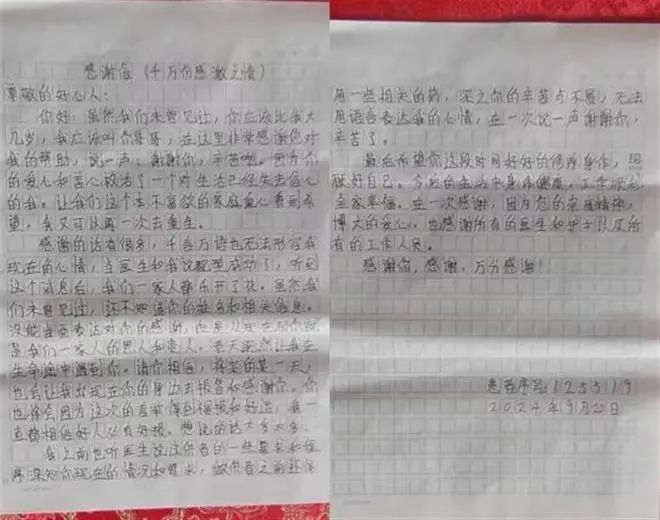 感谢信(千万份感激之情)
尊敬的好心人:
你好!虽然我们未曾见过,你应该比我大
几岁,我应该叫你哥哥,在这里非常感谢您对
我的帮助,说一声:谢谢你,辛苦啦。因为你
的爱心和善心救活了一个对生活已经失去信心
的我。让我们这个本不富裕的家庭重心看到希
望。我又可以再一次去重生。
感谢的话有很多,千言万语也无法形容我
现在的心情,当医生和我说配型成功了,听到
这个消息后,我们一家人都乐开了花。虽然我
们未曾见过,还不知道你的姓名和相关信息。
没能当面表达对你的感谢,但是从现在起你就
是我们一家人的恩人和亲人。老天既然让我在
生命途中遇到你。请你相信,将来的某一天,
也会让我出现在你的身边去报答和感谢你。你
也将会因为这次的善举得到福报和好运,我一
直都相信好人必有好报。想说的话太多太多。
我之前也听医生说过供者的一些要求和程
序深知你现在的情况和要求,做供者之前还得
用一些相关的药,深知你的辛苦与不易,无法
用语言表达我的心情,在一次说一声谢谢你,
辛苦了。
最后希望你这段时间好好的修养身体,照
顾好自己。今后的生活中身体健康,工作顺利
全家幸福。在一次感谢,因为您的奉献精神,
博大的爱心,也感谢所有的医生和护士以及所
有的工作人员。
感谢你,感谢,万分感谢!
患者序号:125519
2024年9月20日